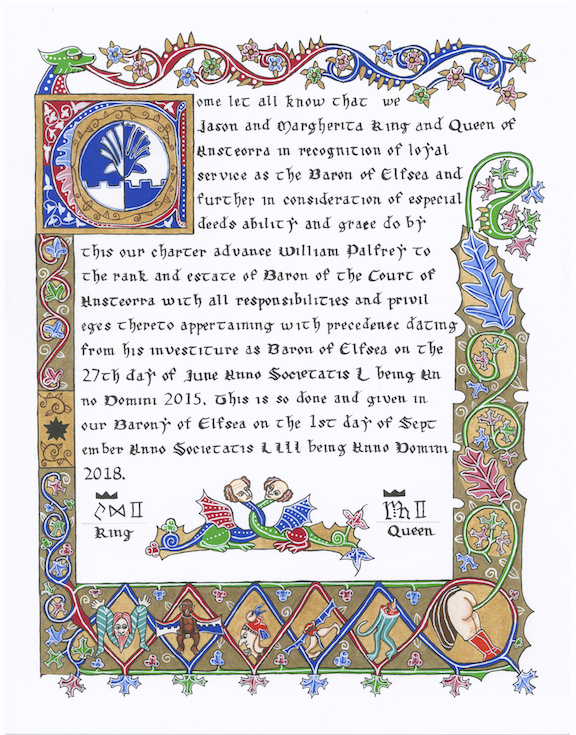 Come let all know that we
Jason and Margherita King and Queen of
Ansteorra in recognition of loyal
service as the Baron of Elfsea and
further in consideration of especial
deeds ability and grace do by
this our charter advance William Palfrey to
the rank and estate of Baron of the Court of
Ansteorra with all responsibilities and privil
eges thereto appertaining with precedence dating
from his investiture as Baron of Elfsea on the
27th day of June Anno Societatis L being An
no Domini 2015. This is so done and given in
our Barony of Elfsea on the 1st day of Sept
ember Anno Societatis LIII being Anno Domini
2018.
II
King
II
Queen